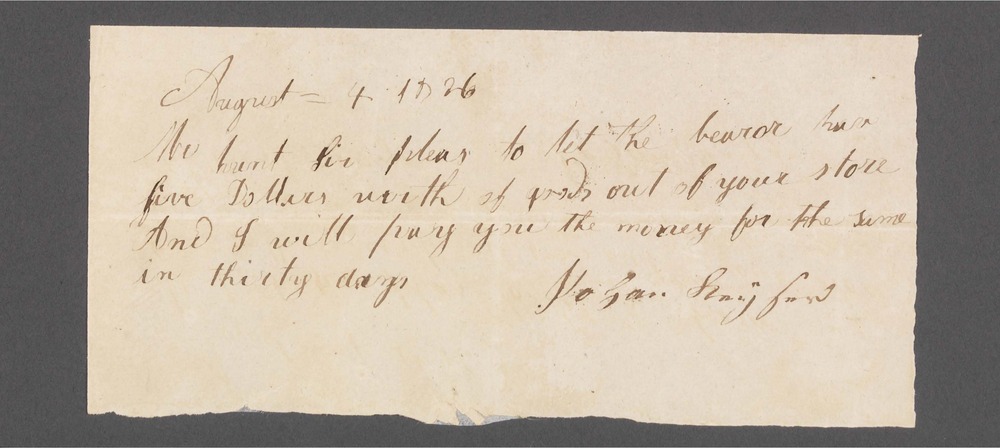 August = 4 1826
Mr hunt Sir pleas to let the bearor hav
five Dollers worth of goods out of your store
And I will pay you the money for the same
in thirty days